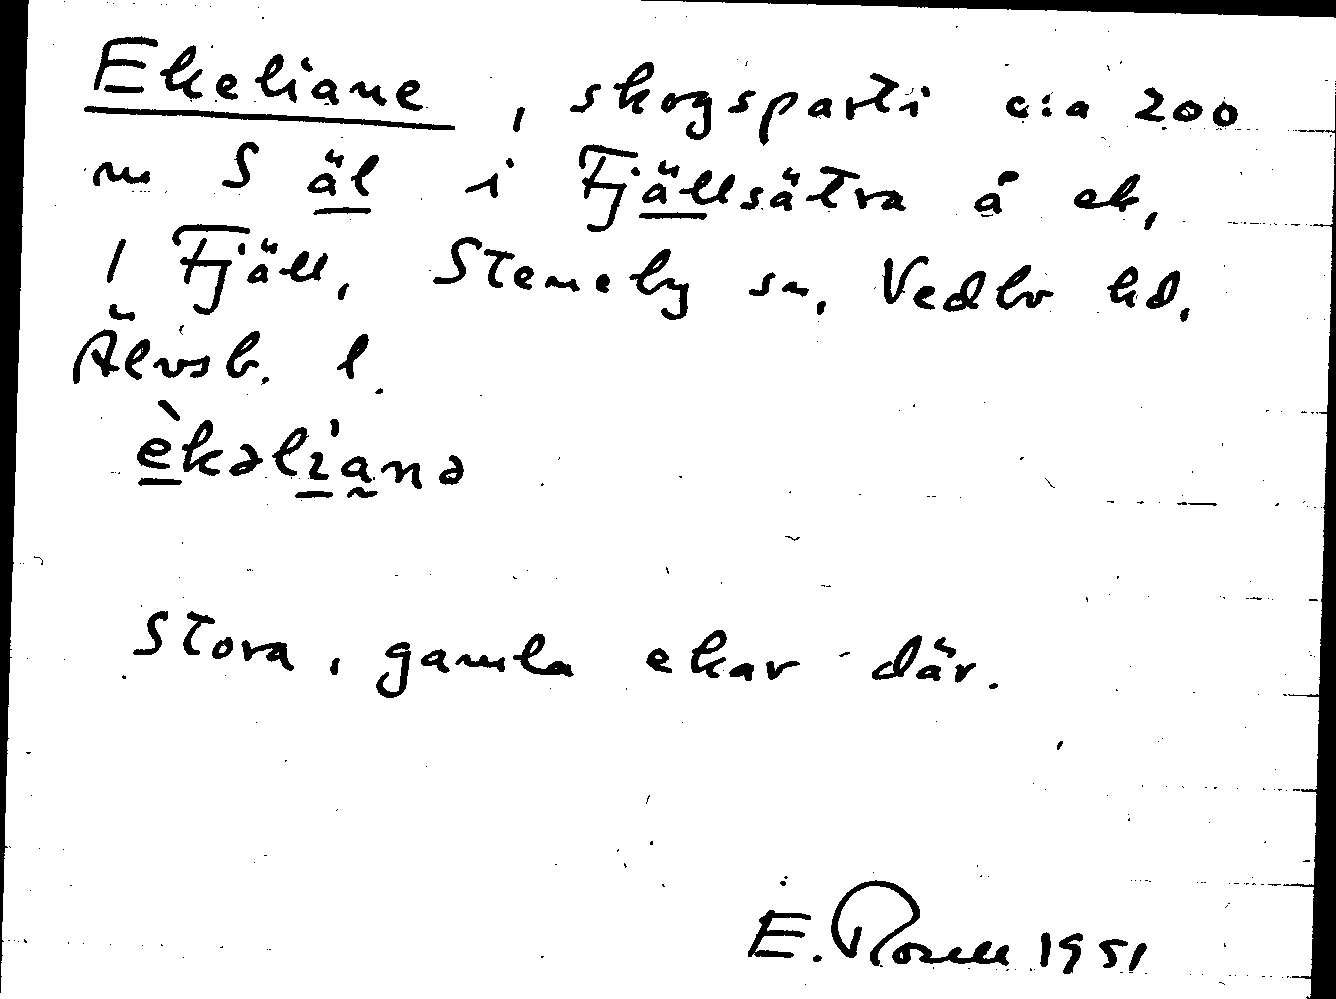 Ekeliane, skogsparti c:a 200
m S äl i Fjällsätra å ek,
1 Fjäll, Steneby sn, Vedbo hd,
Älvsb. l.
èkəli'anə
Stora, gamla ekar där.
E. Rosell 1951